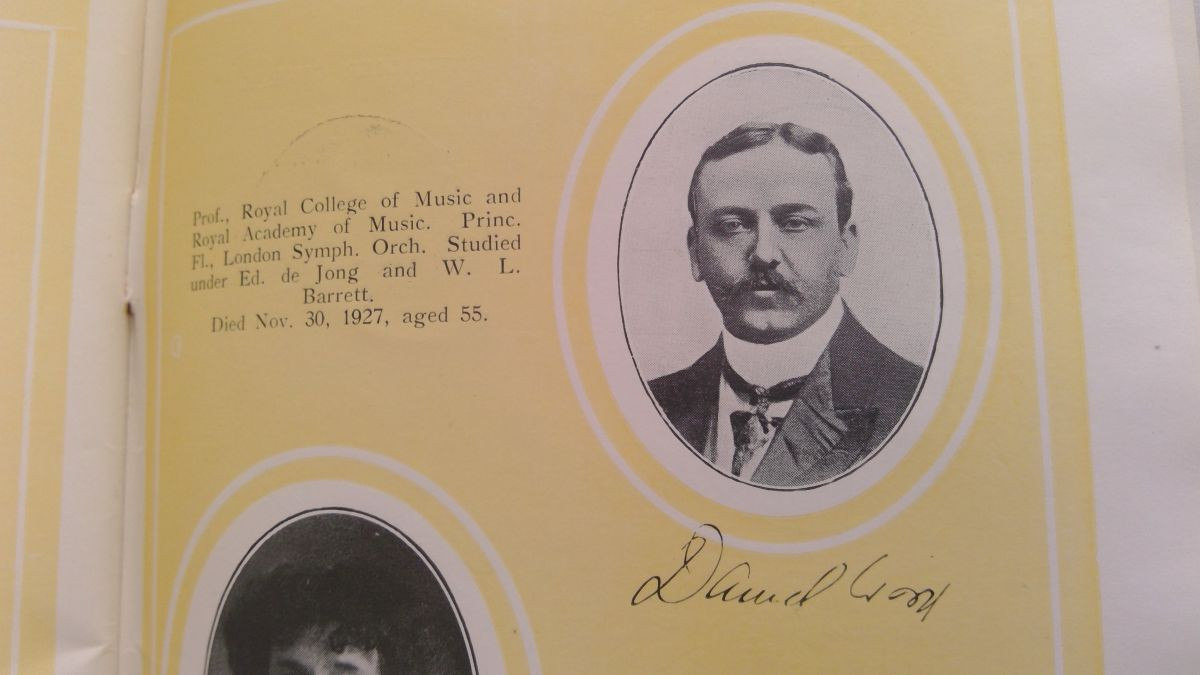 Prof., Royal College of Music and
Royal Academy of Music. Princ.
Fl., London Symph. Orch. Studied
under Ed. de Jong and W. L.
Barrett.
Died Nov. 30, 1927, aged 55.
Daniel Wood